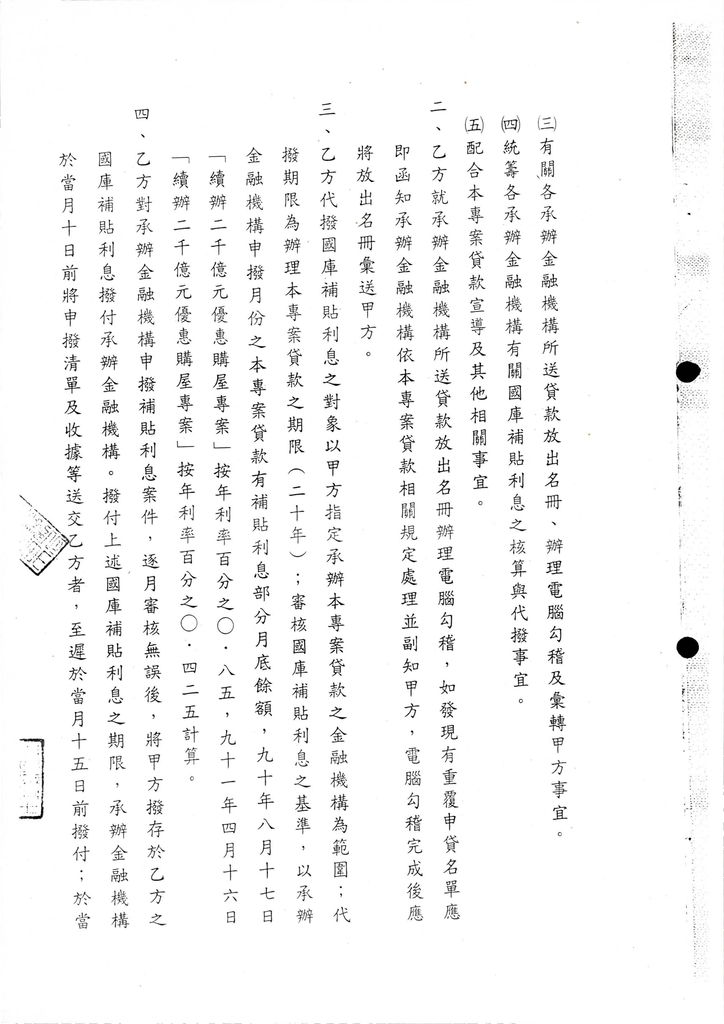 ㈢有關各承辦金融機構所送貸款放出名冊、辦理電腦勾稽及彙轉甲方事宜。
㈣統籌各承辦金融機構有關國庫補貼利息之核算與代撥事宜。
㈤配合本專案貸款宣導及其他相關事宜。
二、乙方就承辦金融機構所送貸款放出名冊辦理電腦勾稽，如發現有重覆申貸名單應
即函知承辦金融機構依本專案貸款相關規定處理並副知甲方，電腦勾稽完成後應
將放出名冊彙送甲方。
三、乙方代撥國庫補貼利息之對象以甲方指定承辦本專案貸款之金融機構為範圍；代
撥期限為辦理本專案貸款之期限（二十年）；審核國庫補貼利息之基準，以承辦
金融機構申撥月份之本專案貸款有補貼利息部分月底餘額，九十年八月十七日
「續辦二千億元優惠購屋專案」按年利率百分之○．八五，九十一年四月十六日
「續辦二千億元優惠購屋專案」按年利率百分之○．四二五計算。
四、乙方對承辦金融機構申撥補貼利息案件，逐月審核無誤後，將甲方撥存於乙方之
國庫補貼利息撥付承辦金融機構。撥付上述國庫補貼利息之期限，承辦金融機構
於當月十日前將申撥清單及收據等送交乙方者，至遲於當月十五日前撥付；於當